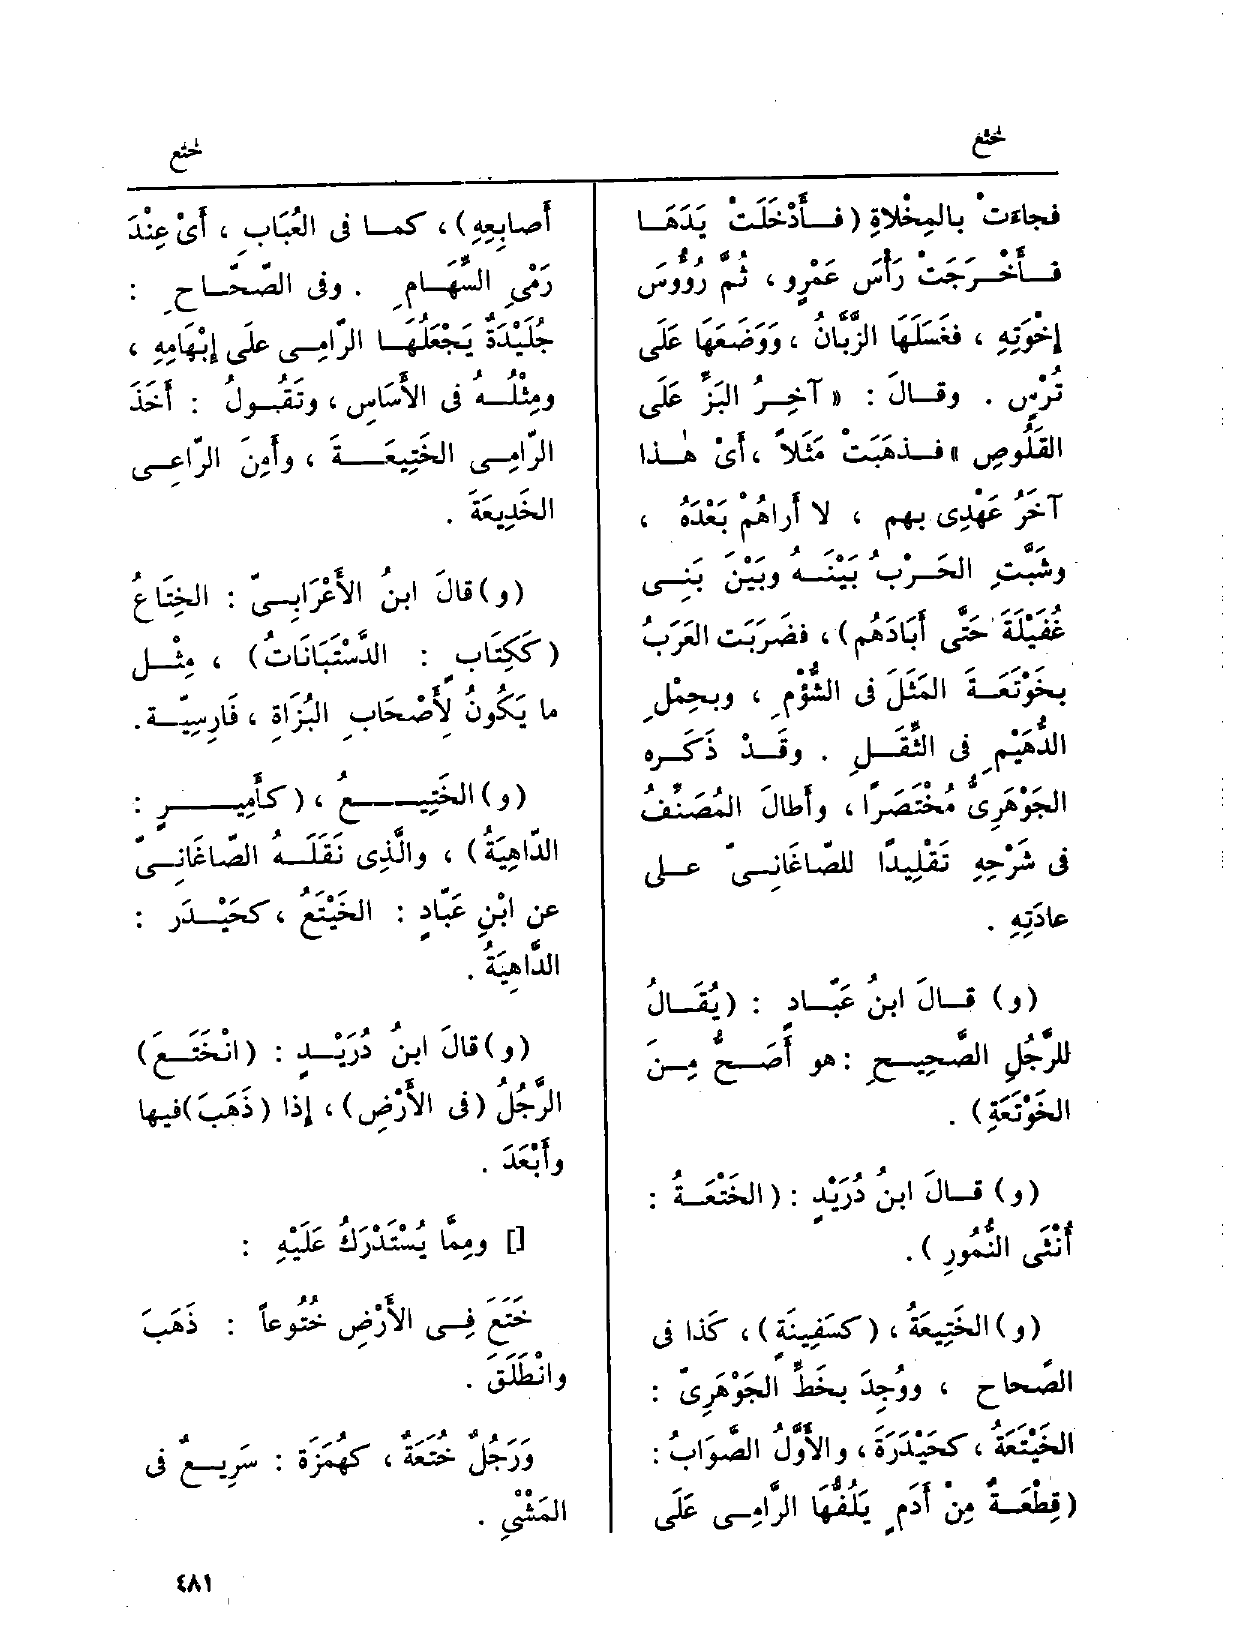 ختع
ختع
فجاءَتْ بالمِخْلاةِ (فأَدْخَلَتْ يَدَهَا
فأَخْرَجَتْ رَأْسَ عَمْرٍو ، ثُمَّ رُؤُوسَ
إِخْوَتِهِ ، فغَسَلَهَا الزَّبَّانُ ، وَوَضَعَهَا عَلَى
تُرْسٍ . وقالَ : « آخِرُ البَزِّ عَلَى
القَلُوصِ » فذهَبَتْ مَثَلاً ، أَىْ هٰذا
آخَرُ عَهْدِى بهم ، لا أَراهُمْ بَعْدَهُ ،
وشَبَّتِ الحَرْبُ بَيْنَهُ وبَيْنَ بَنِى
غُفَيْلَةَ حَتَّى أَبَادَهُم) ، فضَرَبَت العَرَبُ
بخَوْتَعَةَ المَثَلَ فى الشُّؤْمِ ، وبحِمْلِ
الدُّهَيْمِ فى الثِّقَلِ . وقَدْ ذَكَره
الجَوْهَرِىُّ مُخْتَصَرًا ، وأَطالَ المُصَنِّفُ
فى شَرْحِهِ تَقْلِيدًا للصّاغَانِىّ على
عادَتِهِ .
(و) قالَ ابنُ عَبَّادٍ : (يُقَالُ
للرَّجُلِ الصَّحِيحِ : هو أَصَحُّ مِنَ
الخَوْتَعَةِ) .
(و) قالَ ابنُ دُرَيْدٍ : (الخَتْعَةُ :
أُنْثَى النُّمُورِ ) .
(و) الخَتِيعَةُ ، (كسَفِينَةٍ) ، كَذا فى
الصّحاح ، ووُجِدَ بخَطِّ الجَوْهَرِىّ :
الخَيْتَعَةُ ، كحَيْدَرَةَ ، والأَوَّلُ الصَّوَابُ :
(قِطْعَةٌ مِنْ أَدَمٍ يَلُفُّهَا الرَّامِى عَلَى
أَصابِعِهِ) ، كما فى العُبَابِ ، أَىْ عِنْدَ
رَمْىِ السِّهَامِ . وفى الصّحَاحِ :
جُلَيْدَةٌ يَجْعَلُهَا الرّامِى على إِبْهَامِهِ ،
ومِثْلُهُ فى الأَسَاسِ ، وتَقُولُ : أَخَذَ
الرّامِى الخَتِيعَةَ ، وأَمِنَ الرّاعِى
الخَدِيعَةَ .
(و) قالَ ابنُ الأَعْرَابِىّ : الخِتَاعُ
(كَكِتَابٍ : الدَّسْتَبَانَاتُ) ، مِثْل
ما يَكُونُ لِأَصْحَابِ البُزَاةِ ، فَارِسِيّة .
(و) الخَتِيعُ ، (كأَمِيرٍ :
الدّاهِيَةُ) ، والَّذِى نَقَلَهُ الصّاغَانِىّ
عن ابْنِ عَبّادٍ : الخَيْتَعُ ، كحَيْدَر :
الدَّاهِيَةُ .
(و) قالَ ابنُ دُرَيْدٍ : (انْخَتَعَ)
الرَّجُلُ (فى الأَرْضِ) ، إِذا (ذَهَبَ) فيها
وأَبْعَدَ .
[] ومِمَّا يُسْتَدْرَكُ عَلَيْهِ :
خَتَعَ فِى الأَرْضِ خُتُوعاً : ذَهَبَ
وانْطَلَقَ .
وَرَجُلٌ خُتَعَةٌ ، كهُمَزَة : سَرِيعٌ فى
المَشْىِ .
٤٨١